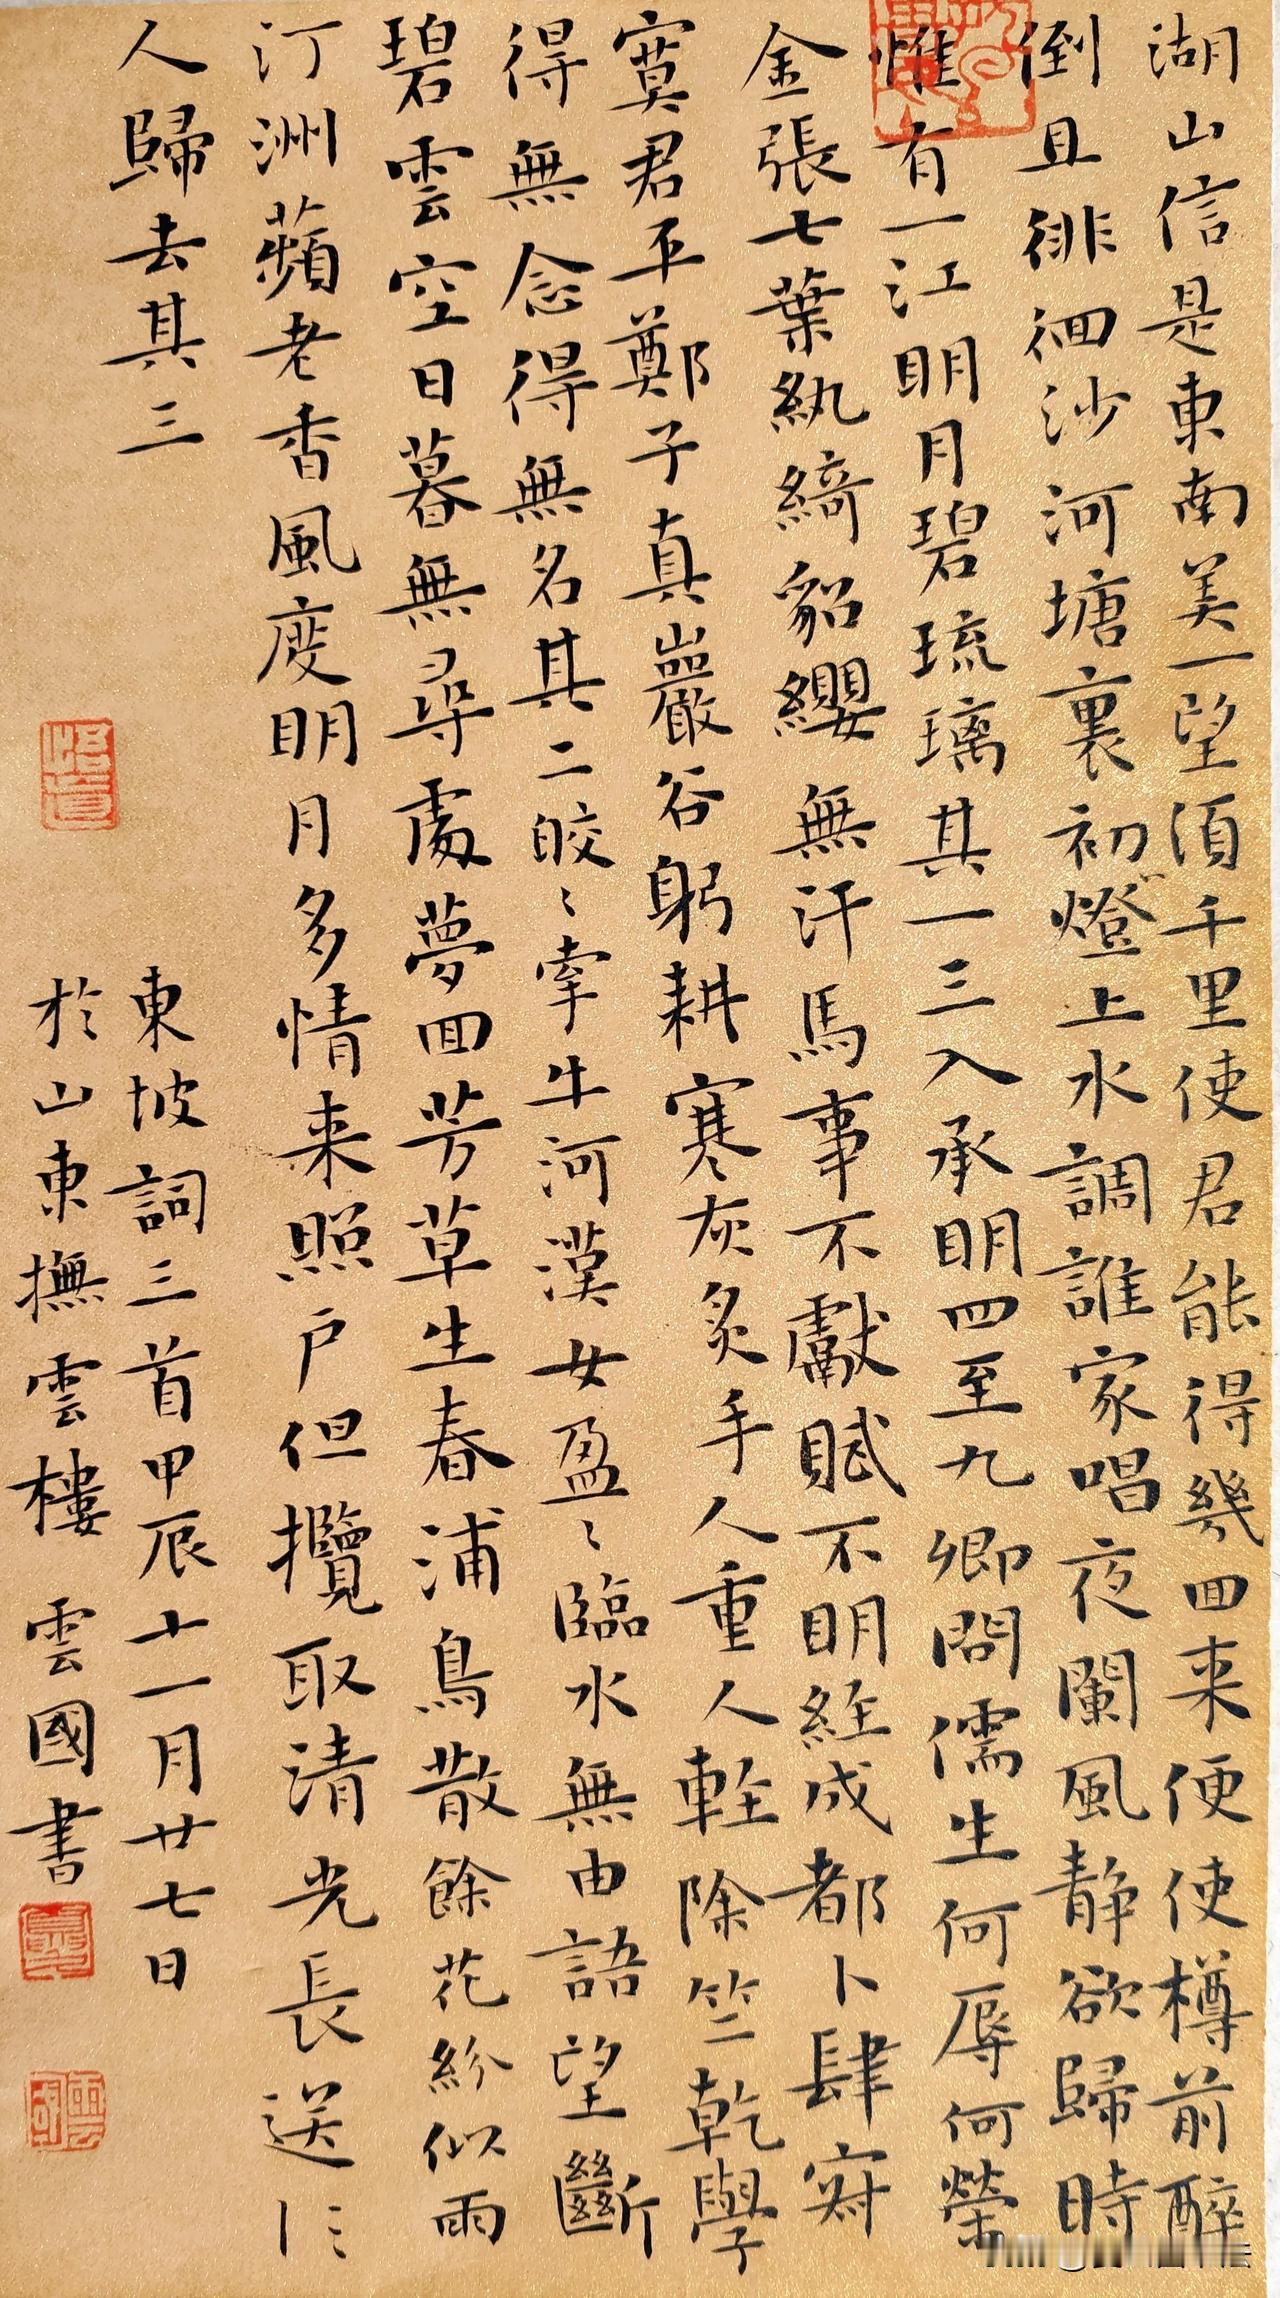 湖山信是東南美一望須千里使君能得幾回来便使樽前醉
倒且徘徊沙河塘裏初燈上水調誰家唱夜闌風静欲歸時
惟有一江明月碧琉璃其一三入承明四至九卿問儒生何辱何榮
金張七葉紈綺貂纓無汗馬事不獻賦不明経成都卜肆寂
寞君平鄭子真巖谷躬耕寒灰炙手人重人軽除竺乾學
得無念得無名其二皎〻牽牛河漢女盈〻臨水無由語望斷
碧雲空日暮無尋處夢回芳草生春浦鳥散餘花紛似雨
汀洲蘋老香風度明月多情来照户但攬取清光長送〻
人歸去其三
東坡詞三首甲辰十一月廿七日
於山東撫雲樓 雲國書
雲國